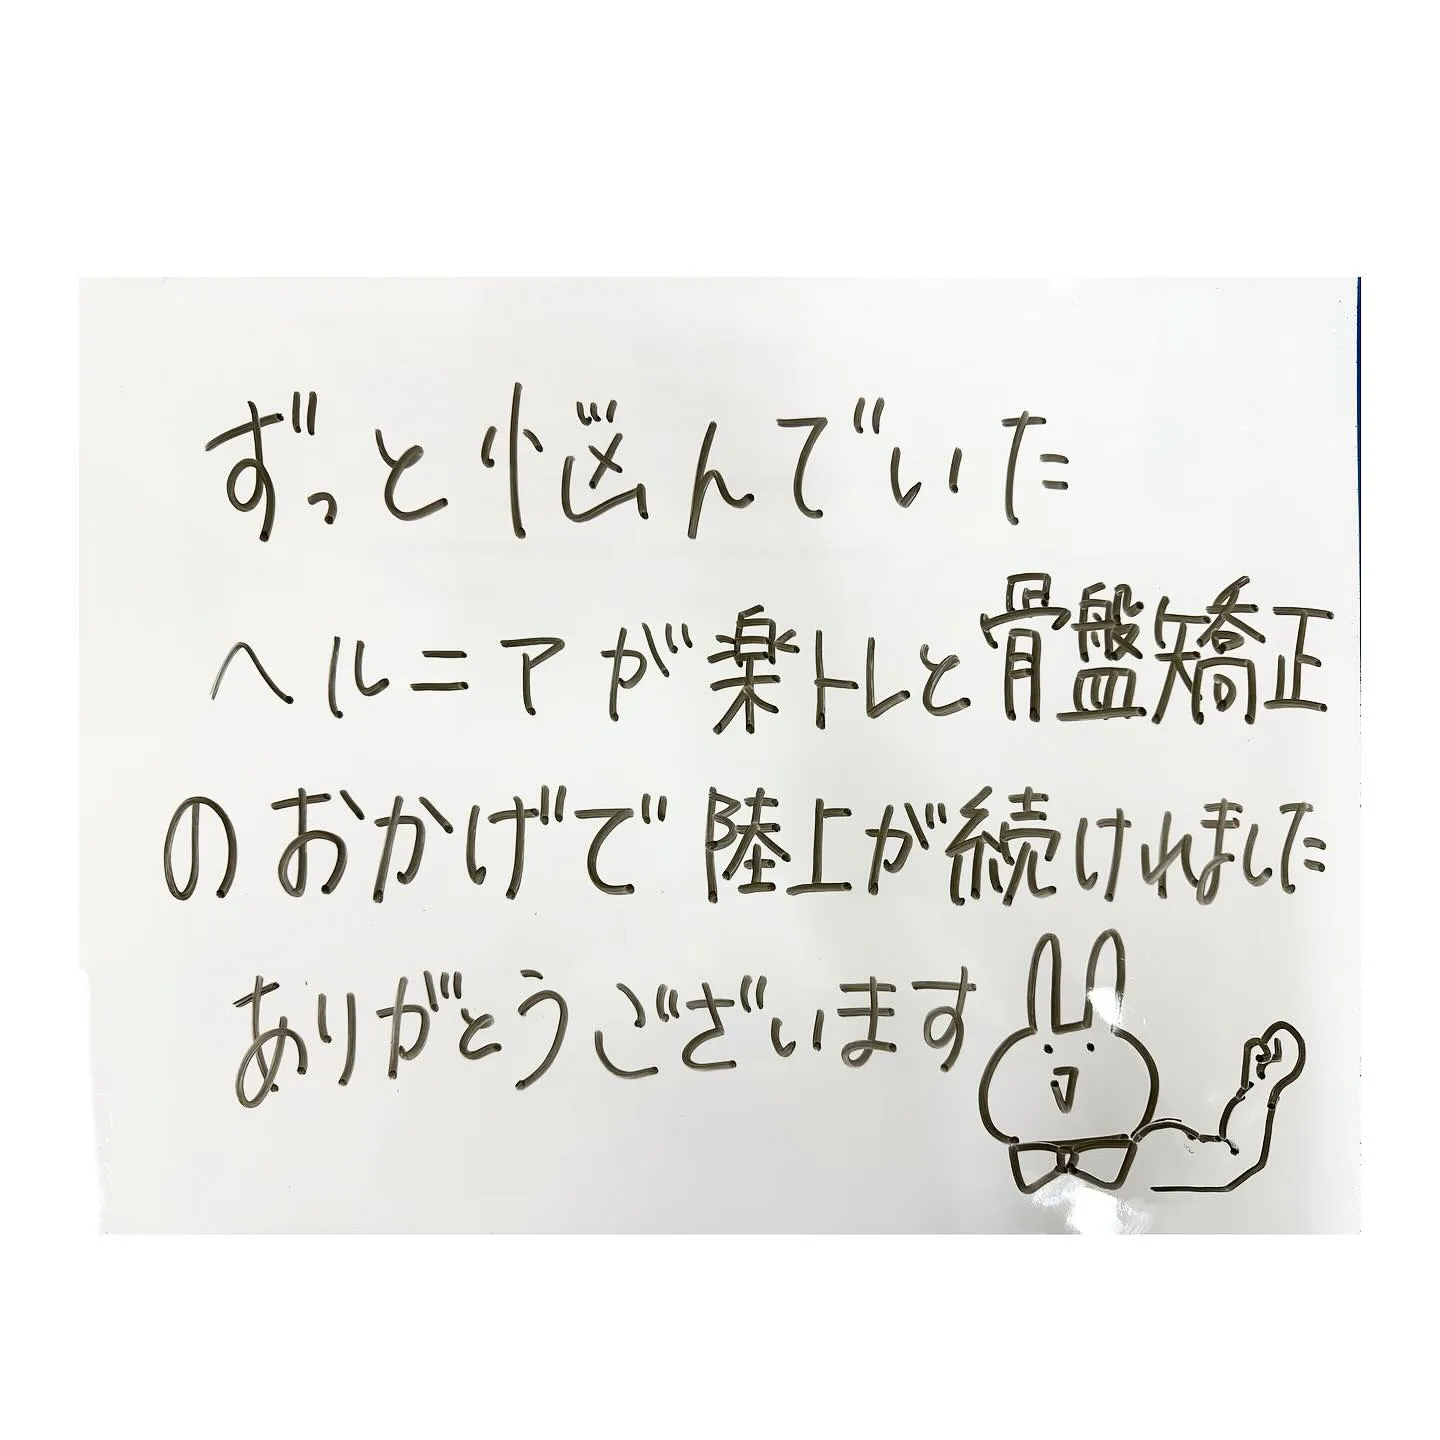 ずっと悩んでいた
ヘルニアが楽トレと骨盤矯正
のおかげで陸上が続けれました
ありがとうございます